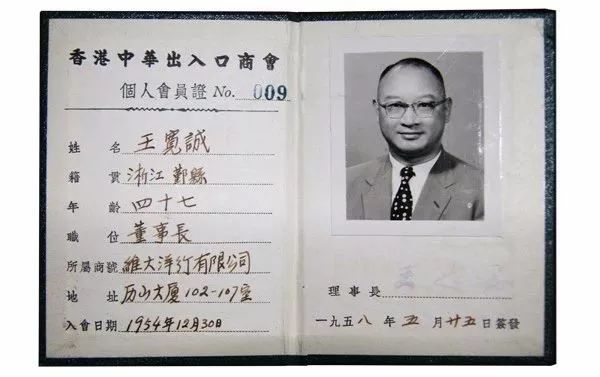 香港中華出入口商會
個人會員證 No. 009
姓名 王寬誠
籍貫 浙江鄞縣
年齡 四十七
職位 董事長
所屬商號 維大洋行有限公司
地址 历山大厦102-107室
入會日期 1954年12月30日
理事長
一九五八年五月廿五日簽發